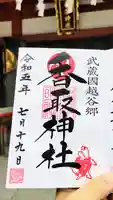 武蔵國越谷郷
香取神社
令和五年
七月十九日